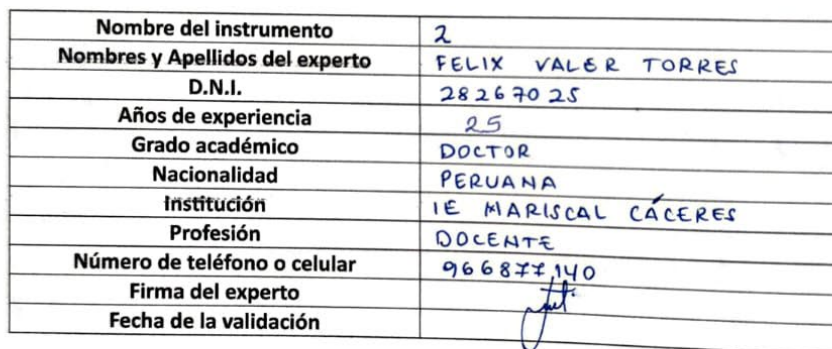 Nombre del instrumento 2
Nombres y Apellidos del experto FELIX VALER TORRES
D.N.I. 28267025
Años de experiencia 25
Grado académico DOCTOR
Nacionalidad PERUANA
Institución IE MARISCAL CÁCERES
Profesión DOCENTE
Número de teléfono o celular 966877140
Firma del experto
Fecha de la validación